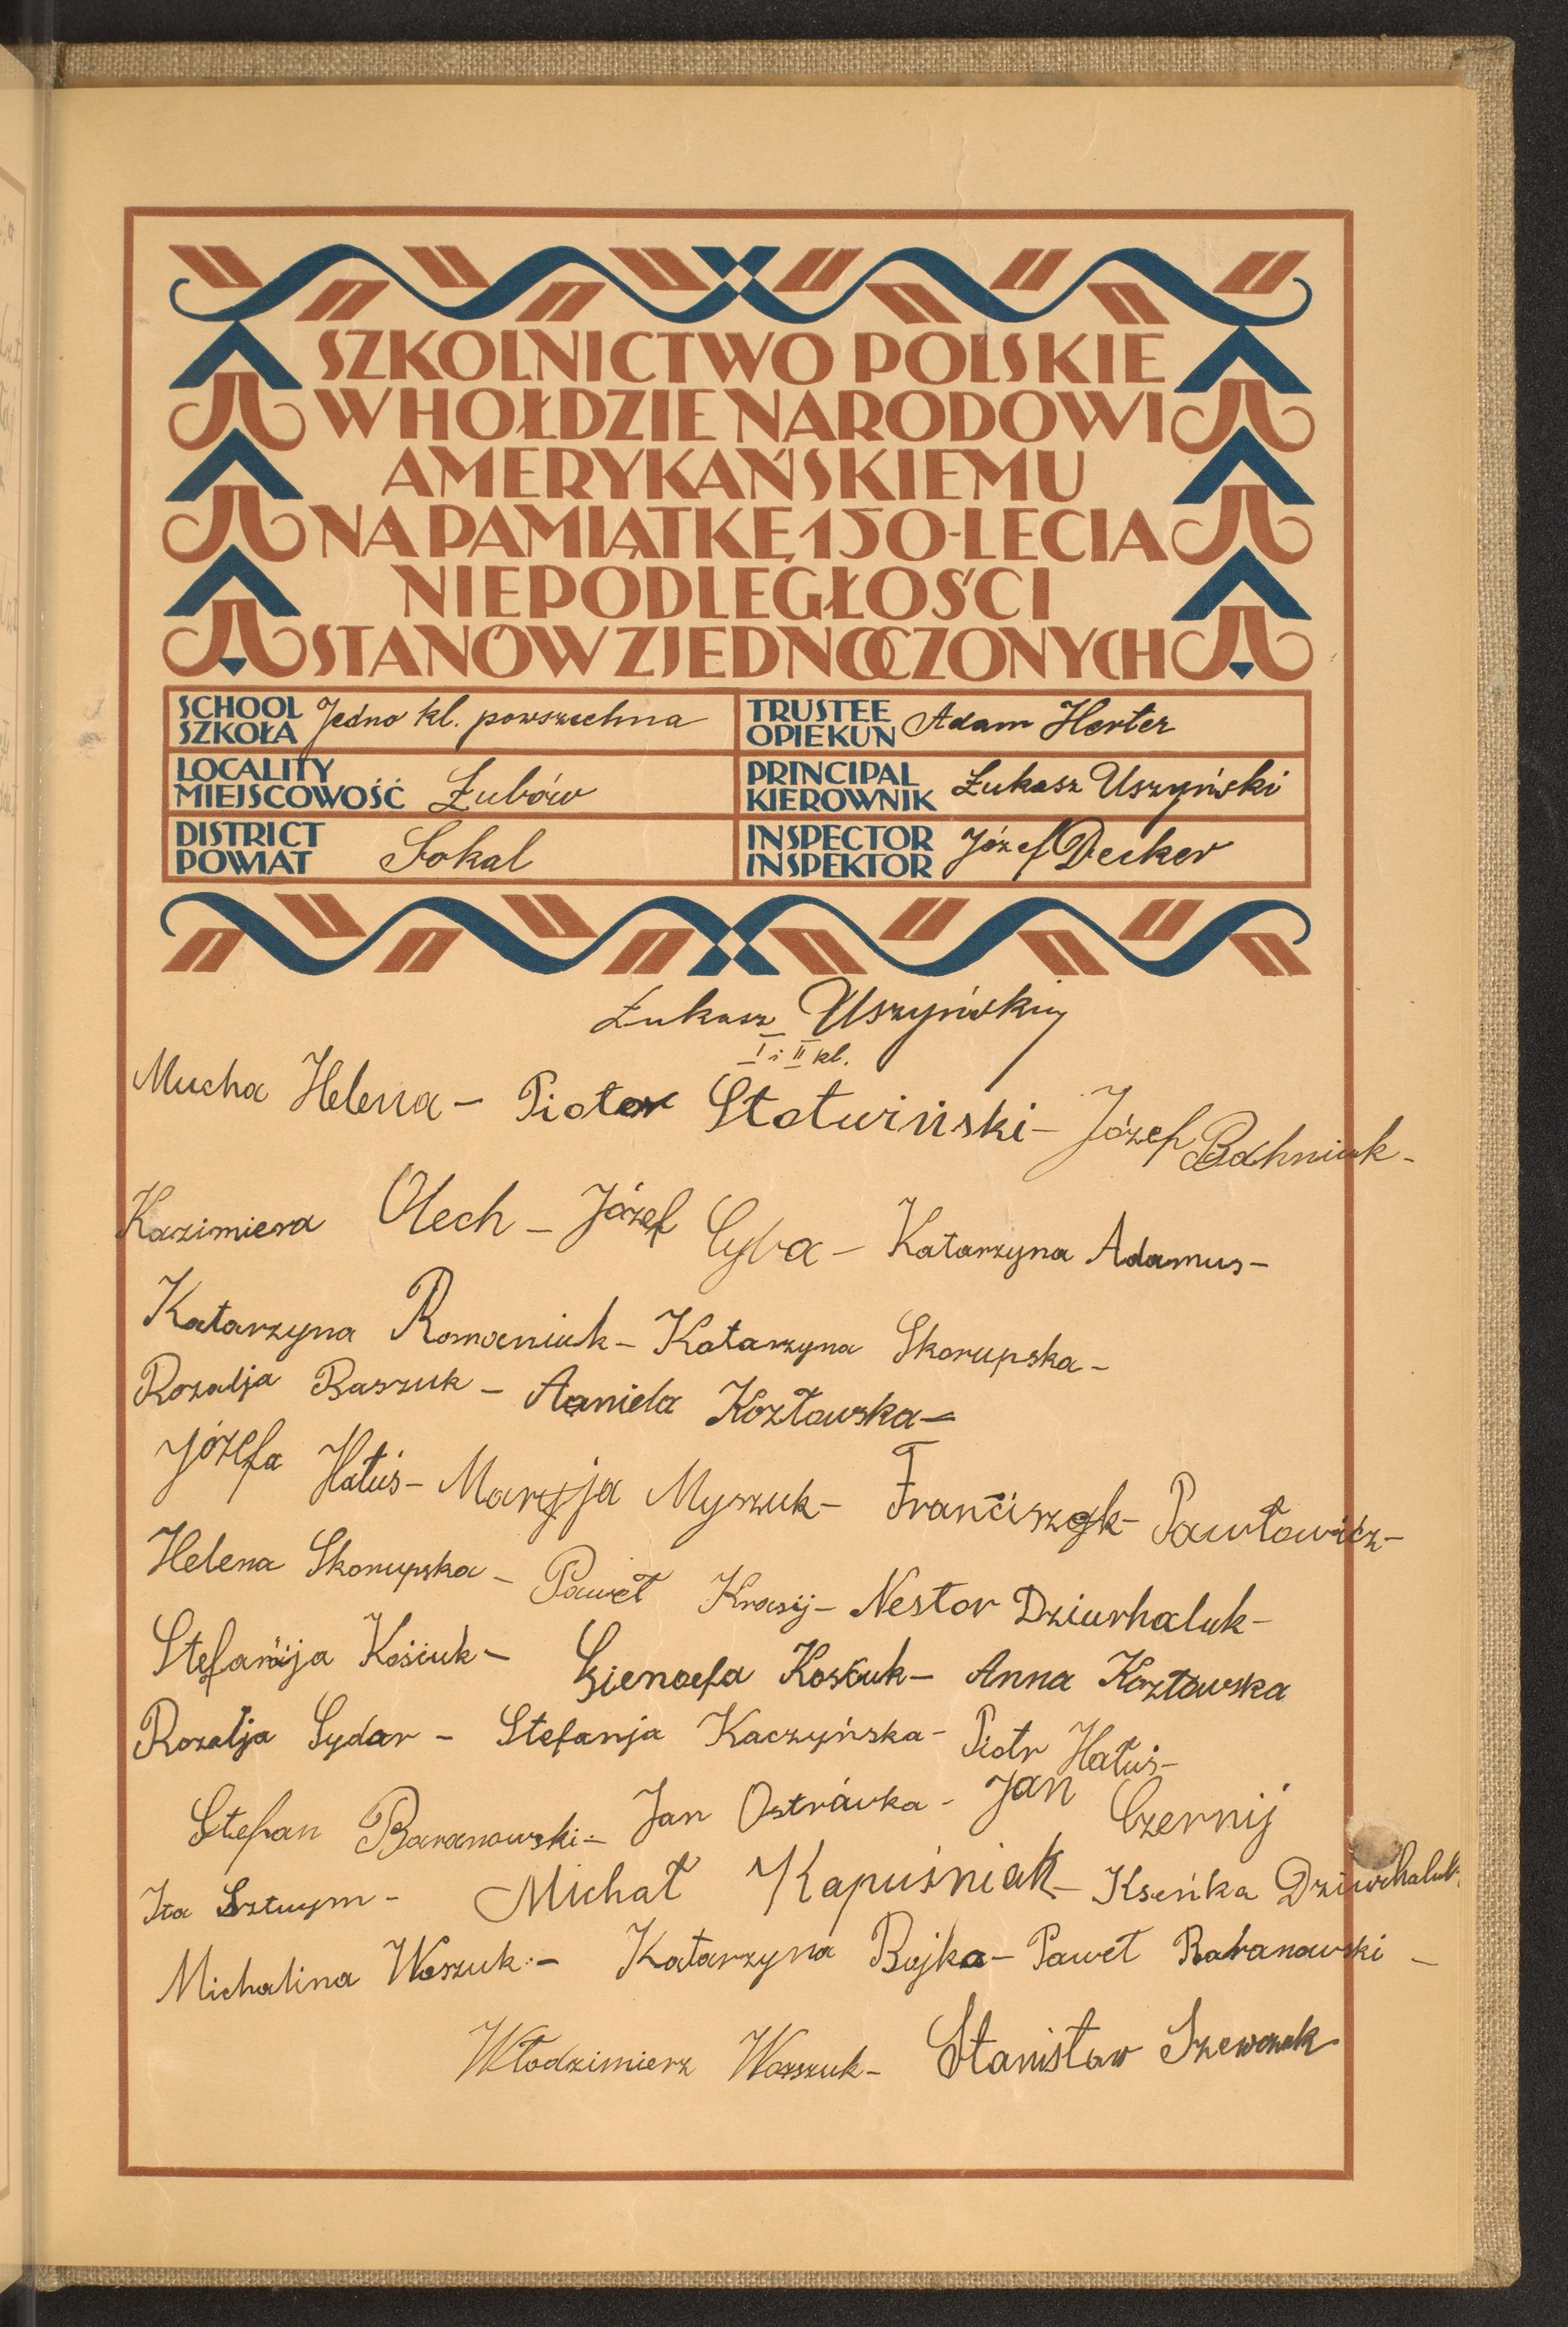 SZKOLNICTWO POLSKIE
W HOŁDZIE NARODOWI
AMERYKAŃSKIEMU
NA PAMIĄTKĘ 150-LECIA
NIEPODLEGŁOŚCI
STANÓW ZJEDNOCZONYCH
SCHOOL SZKOŁA Jedno kl. powszechna
TRUSTEE OPIEKUN Adam Herter
LOCALITY MIEJSCOWOŚĆ Łubów
PRINCIPAL KIEROWNIK Łukasz Uszyński
DISTRICT POWIAT Sokal
INSPECTOR INSPEKTOR Józef Decker
Łukasz Uszyński
I i II kl.
Mucha Helena - Piotr Stotwiński - Józef Bachniuk -
Kazimiera Olech - Józef Cyba - Katarzyna Adamus -
Katarzyna Romaniuk - Katarzyna Skorupska -
Rozalja Baszuk - Aaniela Kozłowska -
Józefa Hałuś - Maryja Myszuk - Franciszek Pawłowicz -
Helena Skorupska - Paweł Krasij - Nestor Dziurhaluk -
Stefanija Kościuk - Gienoefa Kościuk - Anna Kozłowska
Rozalja Sydar - Stefanja Kaczyńska - Piotr Hałuś -
Stefan Baranowski - Jan Ostrówka - Jan Czernij
Ita Sztuym - Michał Kapuśniak - Kseńka Dziurhaluk
Michalina Waszuk - Katarzyna Bojka - Paweł Baranowski -
Włodzimierz Waszuk - Stanisław Szewczuk